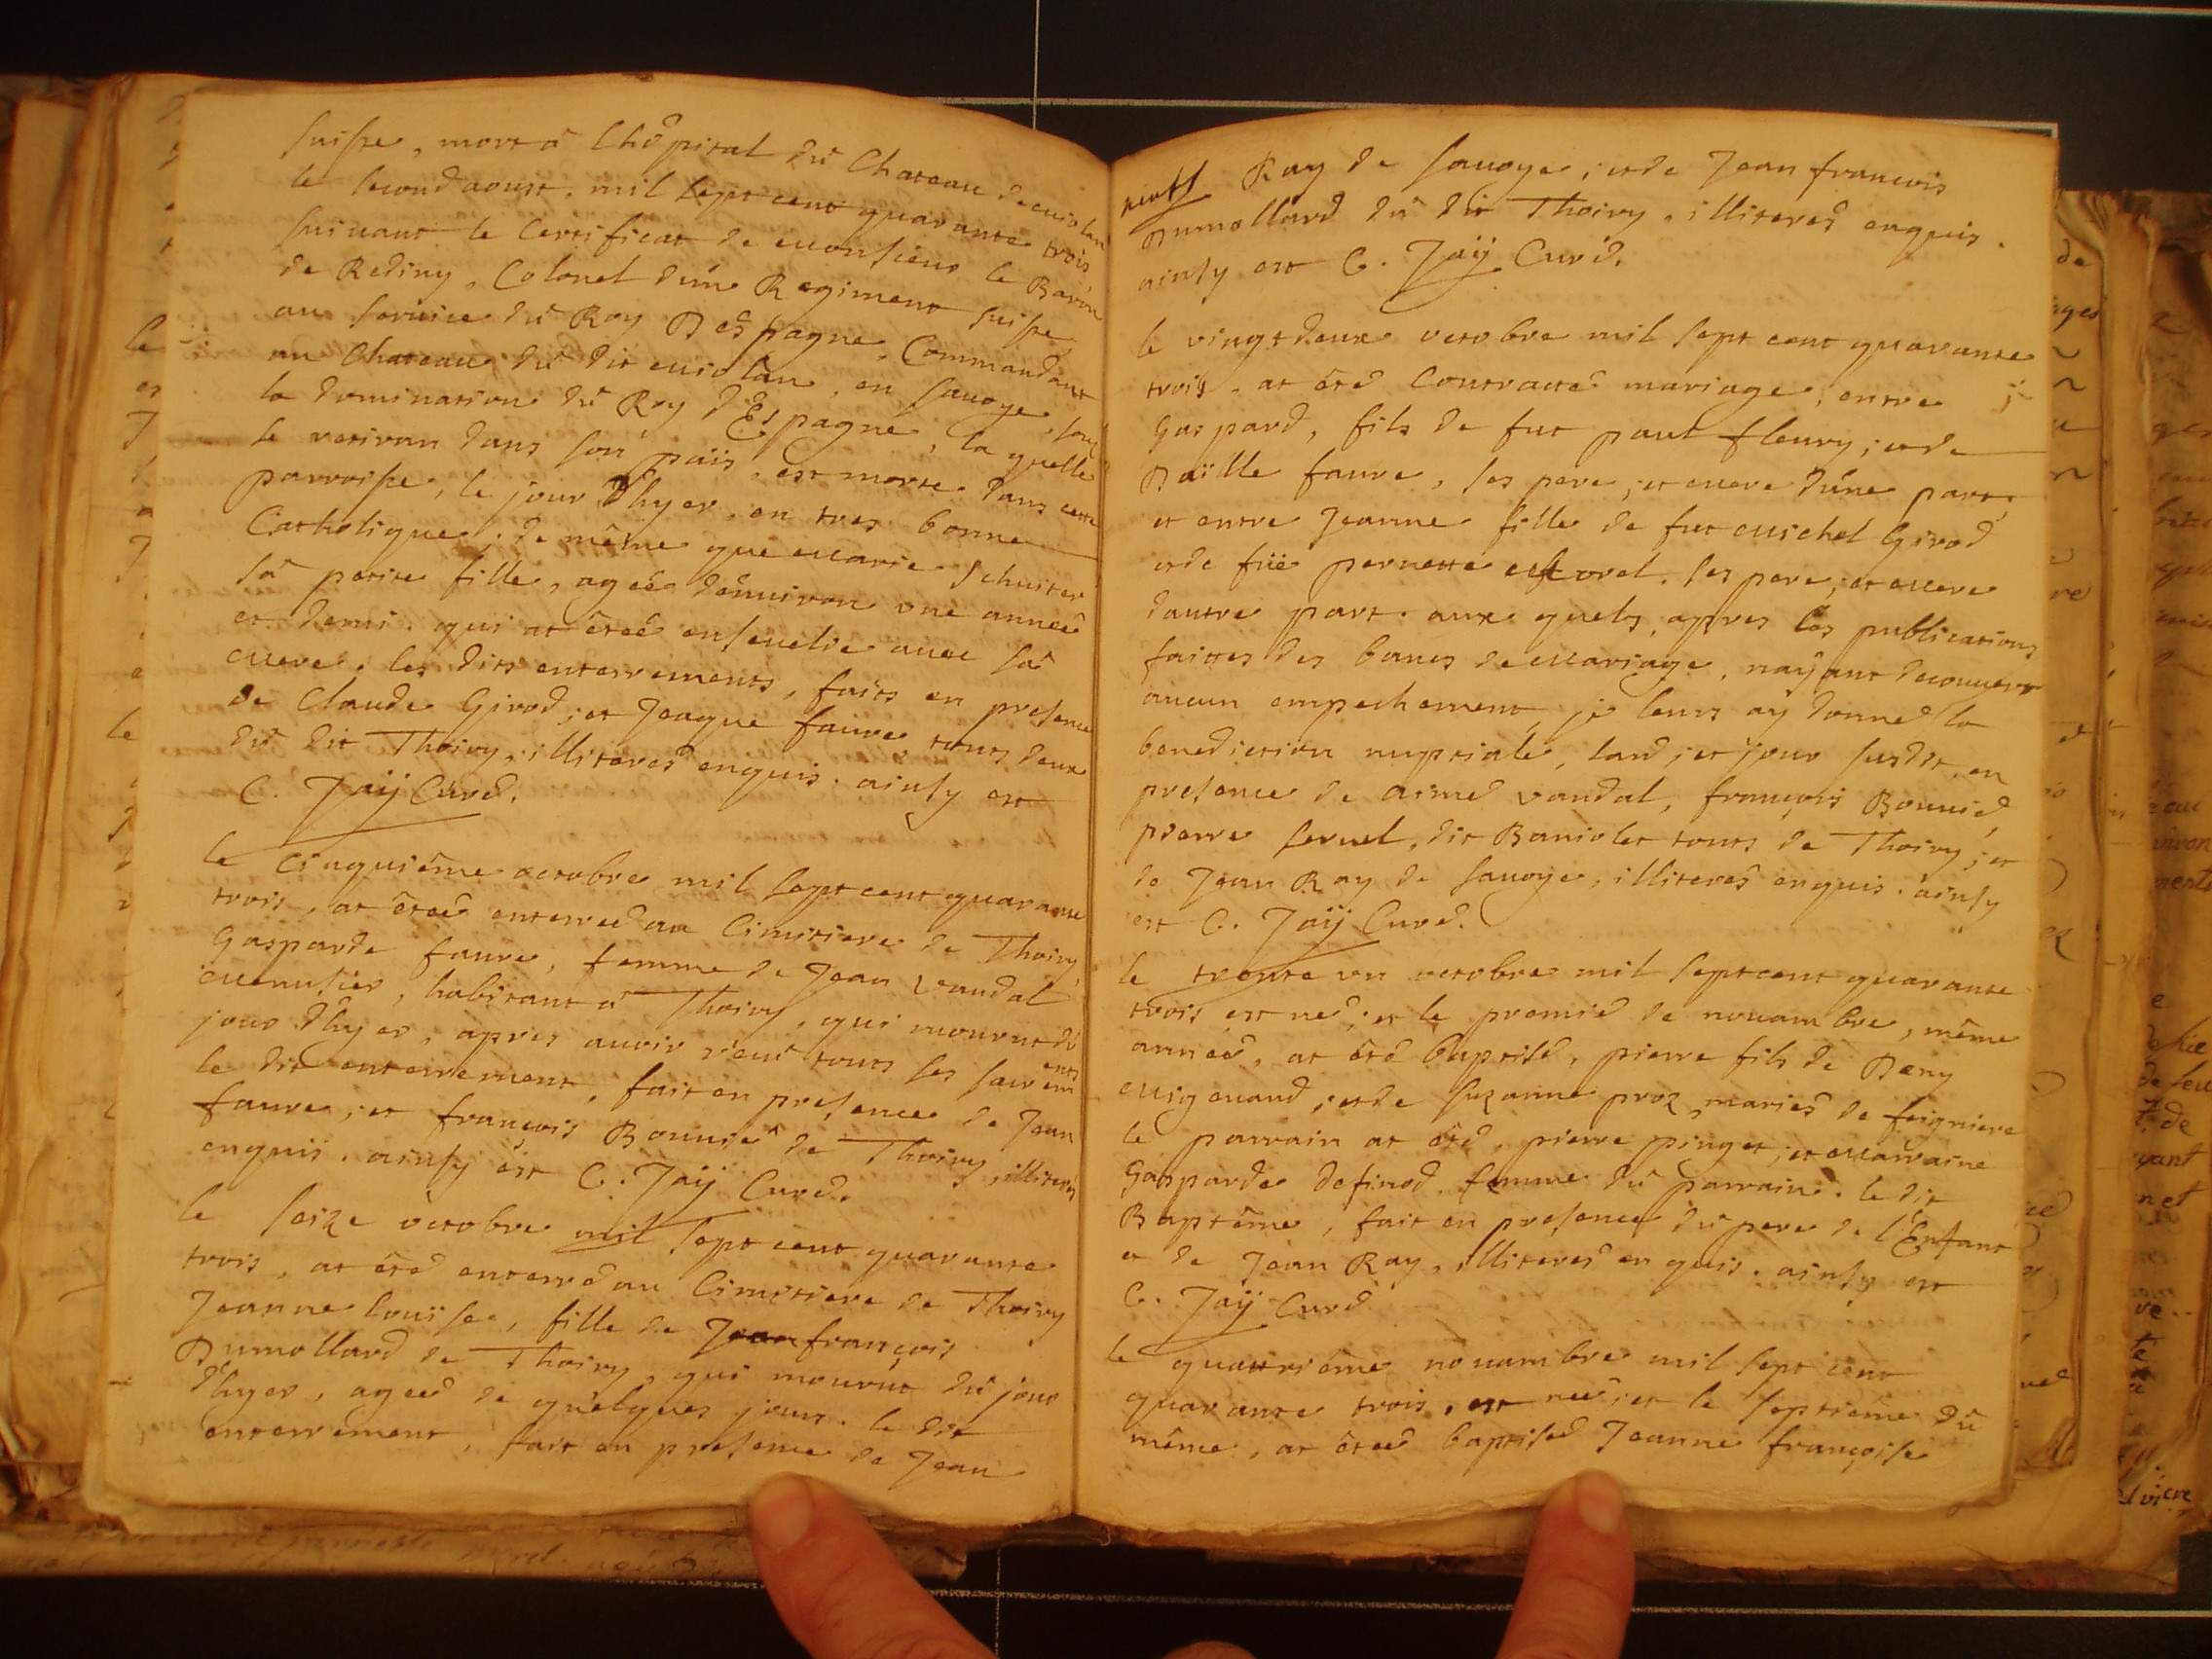 suisse, mort a lhôpital du Chateau de miolan
le second aoust. mil sept cent quarante trois
suivant le Certificat de monsieur le Baron
de Rediny, Colonel dún Regiment suisse
au service du Roy Despagne, Commandant
au Chateau du dit miolan, en savoye, sous
la domination du Roy d'Espagne, la quelle
se retiran dans son païs, est morte dans cette
parroisse, le jour d'hyer, en tres bonne
Catholique; de même que marie Schuiter
sa petite fille, ageé dénuiron vne anneé
et demi. qui at êteé enseuelie auec sa
mere. les dits enterrements, faits en presence
de Claude Girod; et Jeaque faure, touts deux
du dit Thoiry, illiteres enquis. ainsy est
C. Jaÿ Curé.
le cinquiême octobre mil sept cent quarante
trois, at êteé enterreé au Cimitiere de Thoiry
Gasparde faure, femme de Jean Vandal
menusier, habitant a Thoiry, qui mourut du
jour d'hyer, apres auoir reçu touts ses sacrem
ents
le dit enterrement, fait en presence de Jean
faure, et françois Bounié de Thoiry, illiterés
enquis. ainsy êst C. Jaÿ Curé.
le seize octobre mil sept cent quarante
trois, at êté enterré au Cimitiere de Thoiry
Jeanne Louïse, fille de Jean françois
Dumollard de Thoiry, qui mourut du jour
d'hyer, ageé de quèlques jours. le dit
enterrement, fait en presence de Jean
Ray de savoye; et de Jean francois
Dumollard du dit Thoiry, illiteres enquis.
ainsy est C. Jaÿ Curé.
le vingt deux octobre mil sept cent quarante
trois, at êté Contracté mariage, entre
Gaspard, fils de fut paul fleury; et de
Daïlle faure, ses pere, et mere d'úne part;
et entre Jeanne fille de fut michel Girod
et de fuë pernette morel. ses pere, et mere
dautre part. aux quels, apres les publications
faittes des bancs de mariage, naÿant decouvert
aucun empechement, je leurs ay donné la
benediction nuptiale, lan; et jour susdit, en
presence de aimé vandal, françois Bounié,
pierre seruel, dit Baniolet touts de Thoiry; et
de Jean Ray de savoye, illiterés enquis. ainsy
est C. Jaÿ Curé.
le trente vn octobre mil sept cent quarante
trois est né; et le premié de nouambre, même
anneé, at êté baptisé, pierre fils de Deny
migonand; et de suzanne proz mariés de feigniere
le parrain at êté, pierre pinget; et marraine
Gasparde definod, femme du parrain. le dit
Baptême, fait en presence du pere de l'Enfant
et de Jean Ray, illiterés enquis. ainsy est
C. Jaÿ Curé
le quattriême nouambre mil sept cent
quarante trois, est neé; et le septiême du
même, at êteé baptiseé Jeanne françoise